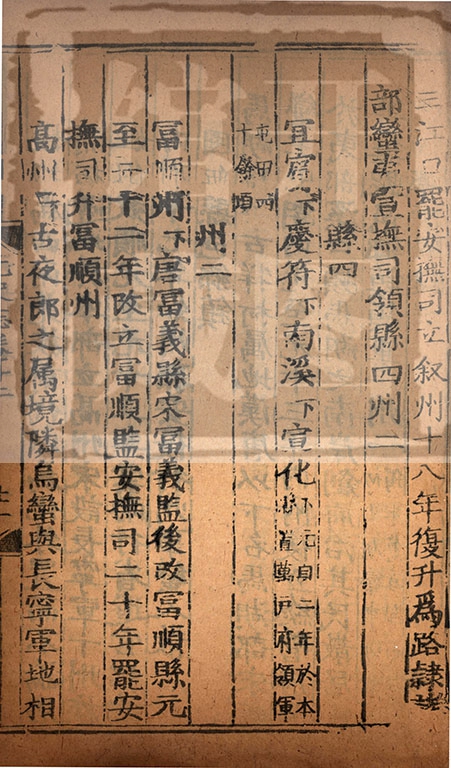 三江口罷安撫司立叙州十八年復升爲路隷
部蠻夷宣撫司領縣四州二
縣四
冝賔下慶符下南溪下宣化下元自二年於本
州置萬戸府領軍
屯田四
十餘頃
州二
冨順州下唐冨義縣宋冨義監後改冨順縣元
至元十二年改立冨順監安撫司二十年罷安
撫司升冨順州
髙州下古夜郎之属境隣烏蠻與長寧軍地相